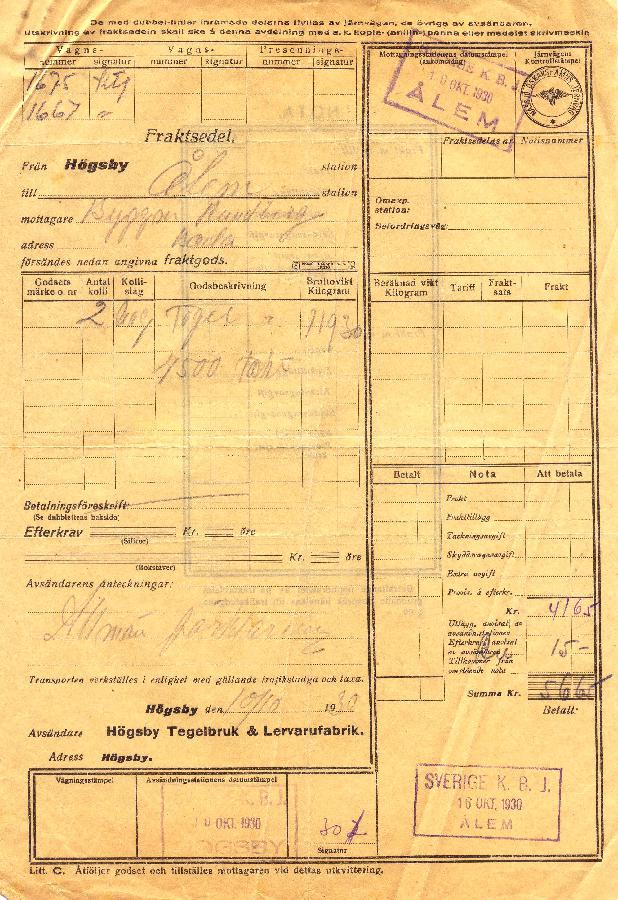 De med dubbel-linier inramade delarna ifyllas av järnvägen, de övriga av avsändaren.
Utskrivning av fraktsedeln skall ske å denna avdelning med s. k. kopie- (anilin-) penna eller medelst skrivmaskin
Vagns- Vagns- Presennings-
nummer signatur nummer signatur nummer signatur
1675 Litt
1667 "
Mottagningsstationens datostämpel
(ankomstdag)
Järnvägens
Kontrollstämpel
SVERIGE K. B. J.
10 OKT. 1930
ÅLEM
Fraktsedel.
Fraktsedelns nr Notisnummer
Från Högsby station
till Ålem station
mottagare Byggm
adress
försändes nedan angivna fraktgods.
Omexp.
station:
Befordringsväg:
Godsets
märke o. nr
Antal
kolli
Kolli-
slag
Godsbeskrivning
Bruttovikt
Kilogram
Beräknad vikt
Kilogram
Tariff
Frakt-
sats
Frakt
2 Tegel 11930
4500
Betalt Nota Att betala
Frakt
Frakttillägg
Täckningsavgift
Skyddsvagnsavgift
Extra avgift
Provis. å efterkr.
Kr. 4165
Betalningsföreskrift:
(Se dubblettens baksida)
Efterkrav Kr. öre
(Siffror)
Kr. öre
(Bokstäver)
Avsändarens anteckningar:
Utlägg, avsänt. av
avsändningsstationen
Efterkrav
Tillkommer från
omstående nota
15-
Summa Kr. 5665
Betalt:
Transporten verkställes i enlighet med gällande trafikstadga och taxa.
Högsby den 10/10 1930
Avsändare Högsby Tegelbruk & Lervarufabrik.
Adress Högsby.
Vägningsstämpel Avsändningsstationens datostämpel
K. B. J.
10 OKT. 1930
HÖGSBY
30
Signatur
SVERIGE K. B. J.
16 OKT. 1930
ÅLEM
Litt. C. Åtföljer godset och tillställes mottagaren vid dettas utkvittering.